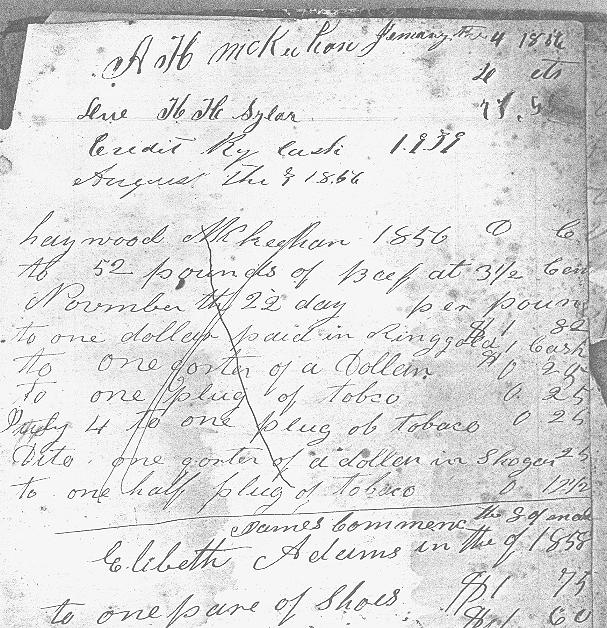 A H McKeehan January the 4 1856
D cts
Due H H Sylar 77.5
Credit By Cash 1.9.39
August the 9 1856
haywood McKeehan 1856 D C
to 52 pounds of Beef at 3 1/2 Cen
November the 22 day per poun
to one dollar paid in Ringgold $1 82
to one gorter of a Dollar $1 Cash 0 25
to one plug of tobco 0 25
July 4 to one plug ob tobaco 0 25
Dito one gorter of a dollar in Shogar 25
to one half plug of tobaco 0 12 1/2
James Commenc the 8 of
Elibeth Adams in the of 1858
to one pare of Shoes $1 75
$1 60